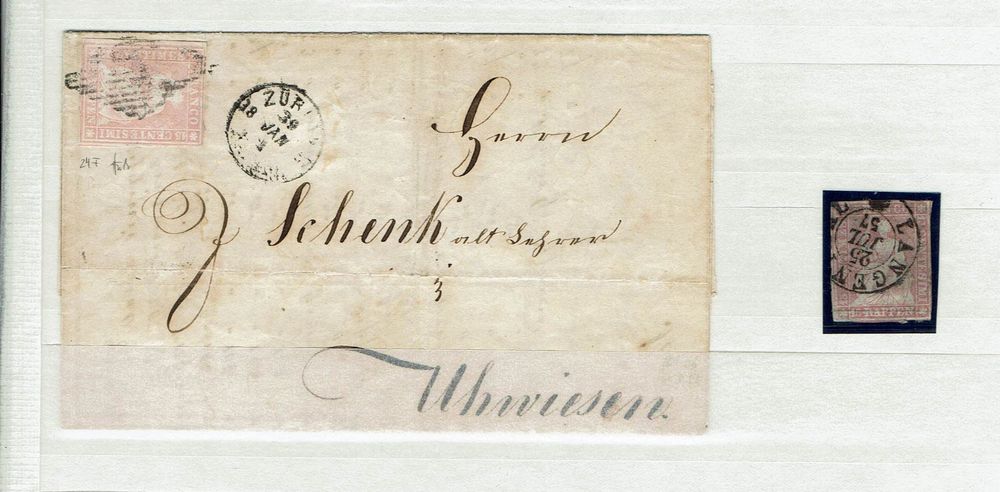 FRANCO
15 CENTESIMI
ZÜRI
28
JAN
24F
Herrn
J. Schenk alt Lehrer
3
Uhwiesen.
LANGEN
25
JUL
57